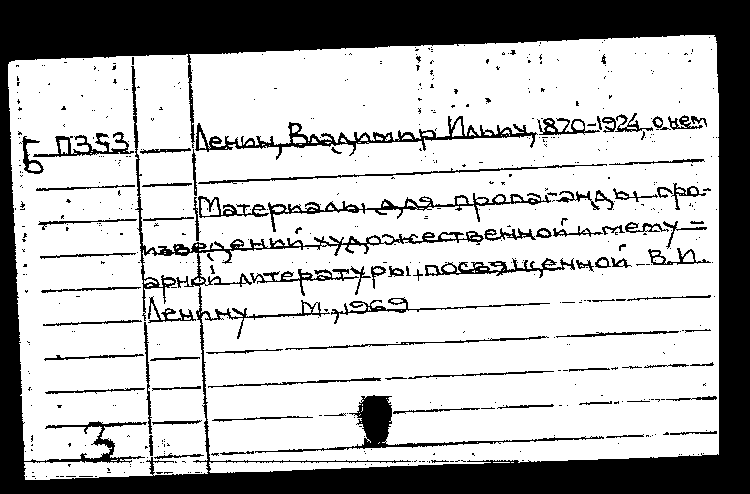 Б П353 Ленин, Владимир Ильич, 1870-1924, о нем
Материалы для пропаганды про-
изведений художественной и мему-
арной литературы, посвященной В.И.
Ленину. М., 1969
3